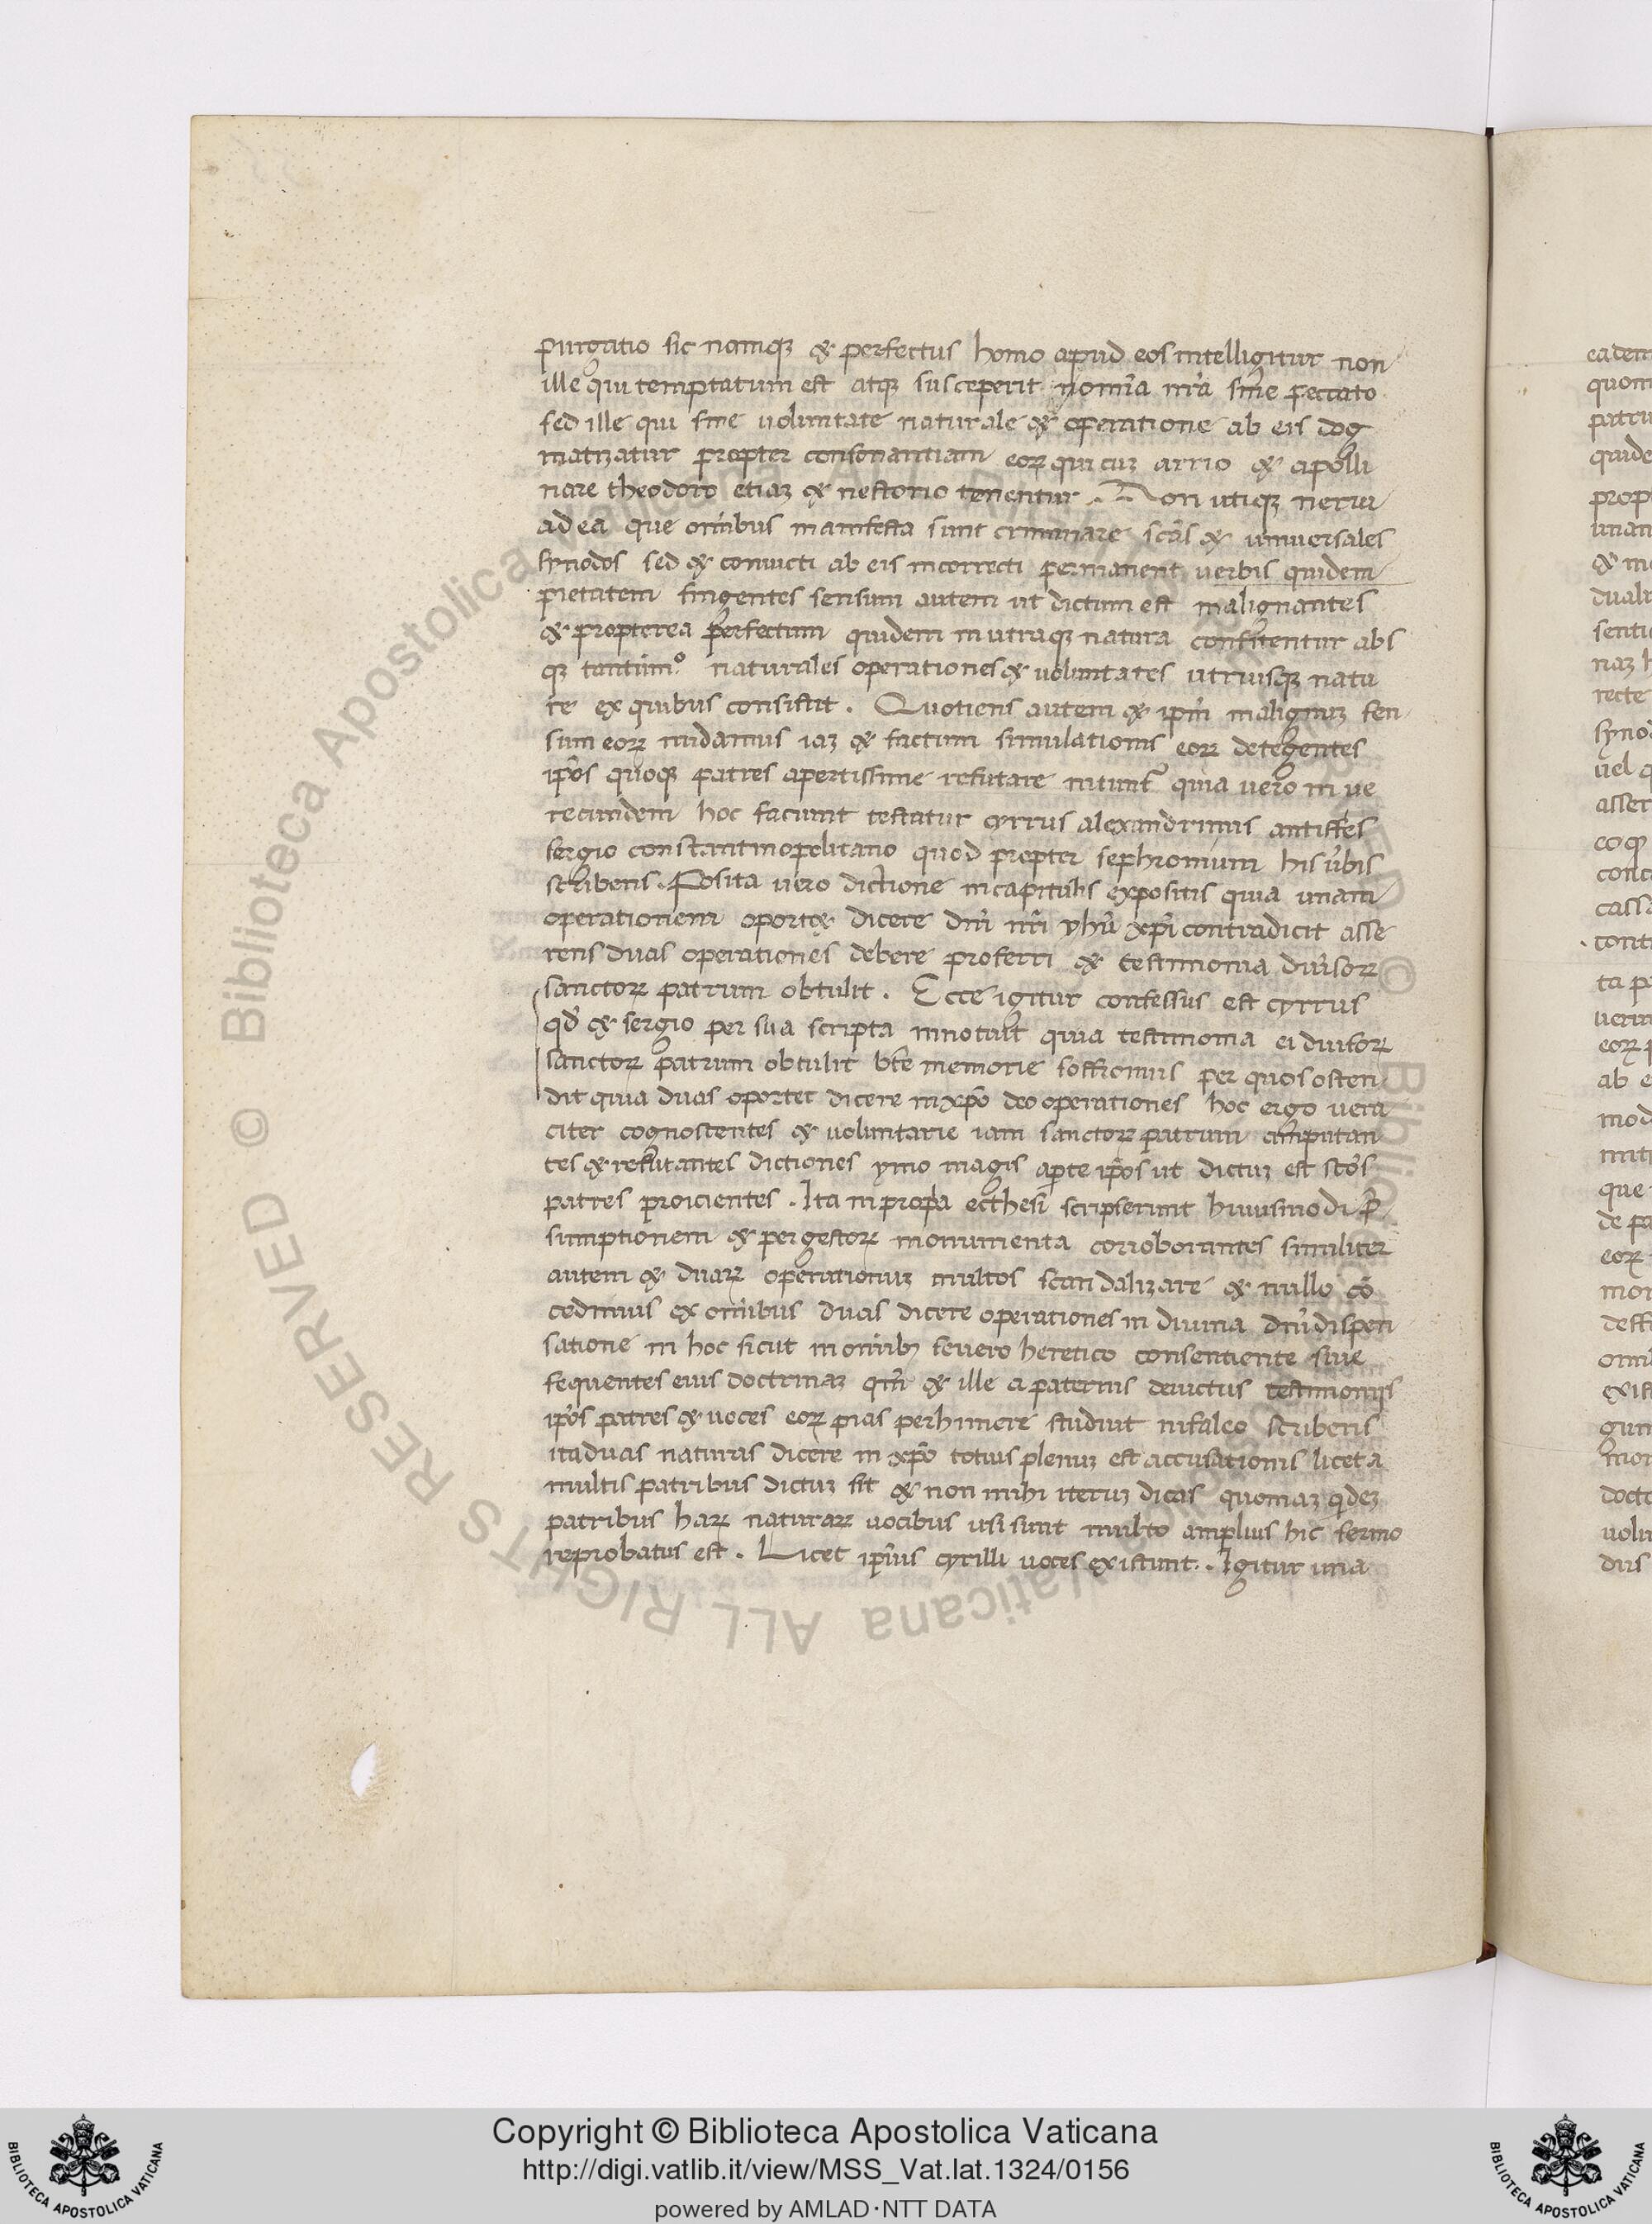 purgatio sic namqꝫ & perfectus homo apud eos intelligitur non
ille qui temptatum est atqꝫ susceperit nom̄ia nr̄a sine peccato
sed ille qui sine voluntate naturale & operatione ab eis dog
matizatur propter consonantiam eoꝝ qui cuꝫ arrio & apolli
nare theodoro etiaꝫ & nestorio tenentur. Non utiqꝫ
ad ea que om̄ibus manifesta sunt criminare sc̄as & universales
synodos sed & convicti ab eis incorrecti permanent verbis quidem
pietatem fingentes sensum autem ut dictum est malignantes
& propterea perfectum quidem in utraqꝫ natura confitentur abs
qꝫ tantūmº naturales operationes & voluntates utriusqꝫ natu
re ex quibus consistit. Quotiens autem & ip̄m malignuꝫ sen
sum eoꝝ nudamus iaꝫ & factum simulationis eoꝝ detegentes
ip̄os quoqꝫ patres apertissime refutare nitunt̄ quia vero in ve
recundem hoc faciunt testatur cyrrus alexandrinus antistes
sergio constantinopolitano quod propter sophronium his v̄bis
scribens. Posita vero dictione in capitulis expositis quia unam
operationem oport& dicere dn̄i nr̄i yhū xp̄i contradicit asse
rens duas operationes debere proferri & testimonia div̄soꝝ
sanctoꝝ patrum obtulit. Ecce igitur confessus est cyrrus
qd̄ & sergio per sua scripta innotuit quia testimonia ei divisoꝝ
sanctoꝝ patrum obtulit bt̄e memorie soffronius per quos osten
dit quia duas oportet dicere in xp̄o deo operationes hoc ergo vera
citer cognoscentes & voluntarie iam sanctoꝝ patrum amputan
tes & refutantes dictiones ymo magis aperte ip̄os ut dictuꝫ est sc̄os
patres proicientes. Ita in propa ecthesi scripserunt huiusmodi p̄
sumptionem & per gestoꝝ monumenta corroborantes similiter
autem & duaꝝ operationuꝫ multos scandalizare & nullo cō
cedimus ex om̄ibus duas dicere operationes in divina dn̄i dispen
satione in hoc sicut in om̄ibꝫ severo heretico consentiente sive
sequentes eius doctrinaꝫ qm̄ & ille a paternis devictus testimoniis
ip̄os patres & voces eoꝝ pias perhimere studuit nifaleo scribens
ita duas naturas dicere in xp̄o totius plenuꝫ est accusationis licet a
multis patribus dictuꝫ sit & non mihi iteruꝫ dicas quoniaꝫ qdeꝫ
patribus haꝝ naturaꝝ vocibus usi sunt multo amplius hic sermo
reprobatus est. Licet ip̄ius cyrilli voces existunt. Igitur una
Copyright © Biblioteca Apostolica Vaticana
http://digi.vatlib.it/view/MSS_Vat.lat.1324/0156
powered by AMLAD·NTT DATA